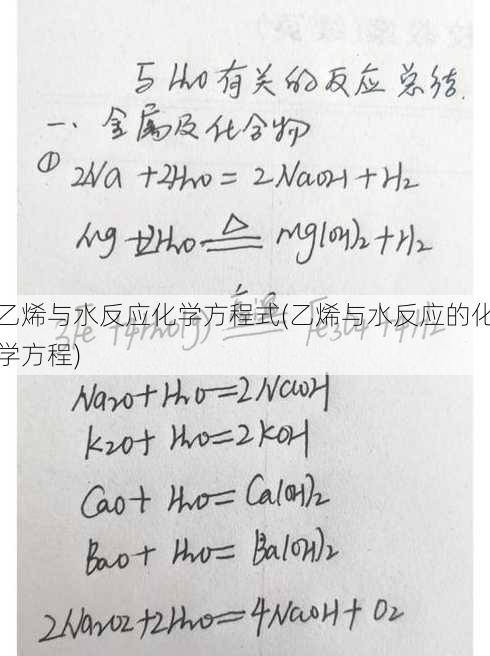 与H₂O有关的反应总结
一、金属及化合物
① 2Na+2H₂O=2NaOH+H₂
Mg+2H₂O=△=Mg(OH)₂+H₂
3Fe+4H₂O(g)=高温=Fe₃O₄+4H₂
乙烯与水反应化学方程式(乙烯与水反应的化
学方程)
Na₂O+H₂O=2NaOH
K₂O+H₂O=2KOH
CaO+H₂O=Ca(OH)₂
BaO+H₂O=Ba(OH)₂
2Na₂O₂+2H₂O=4NaOH+O₂